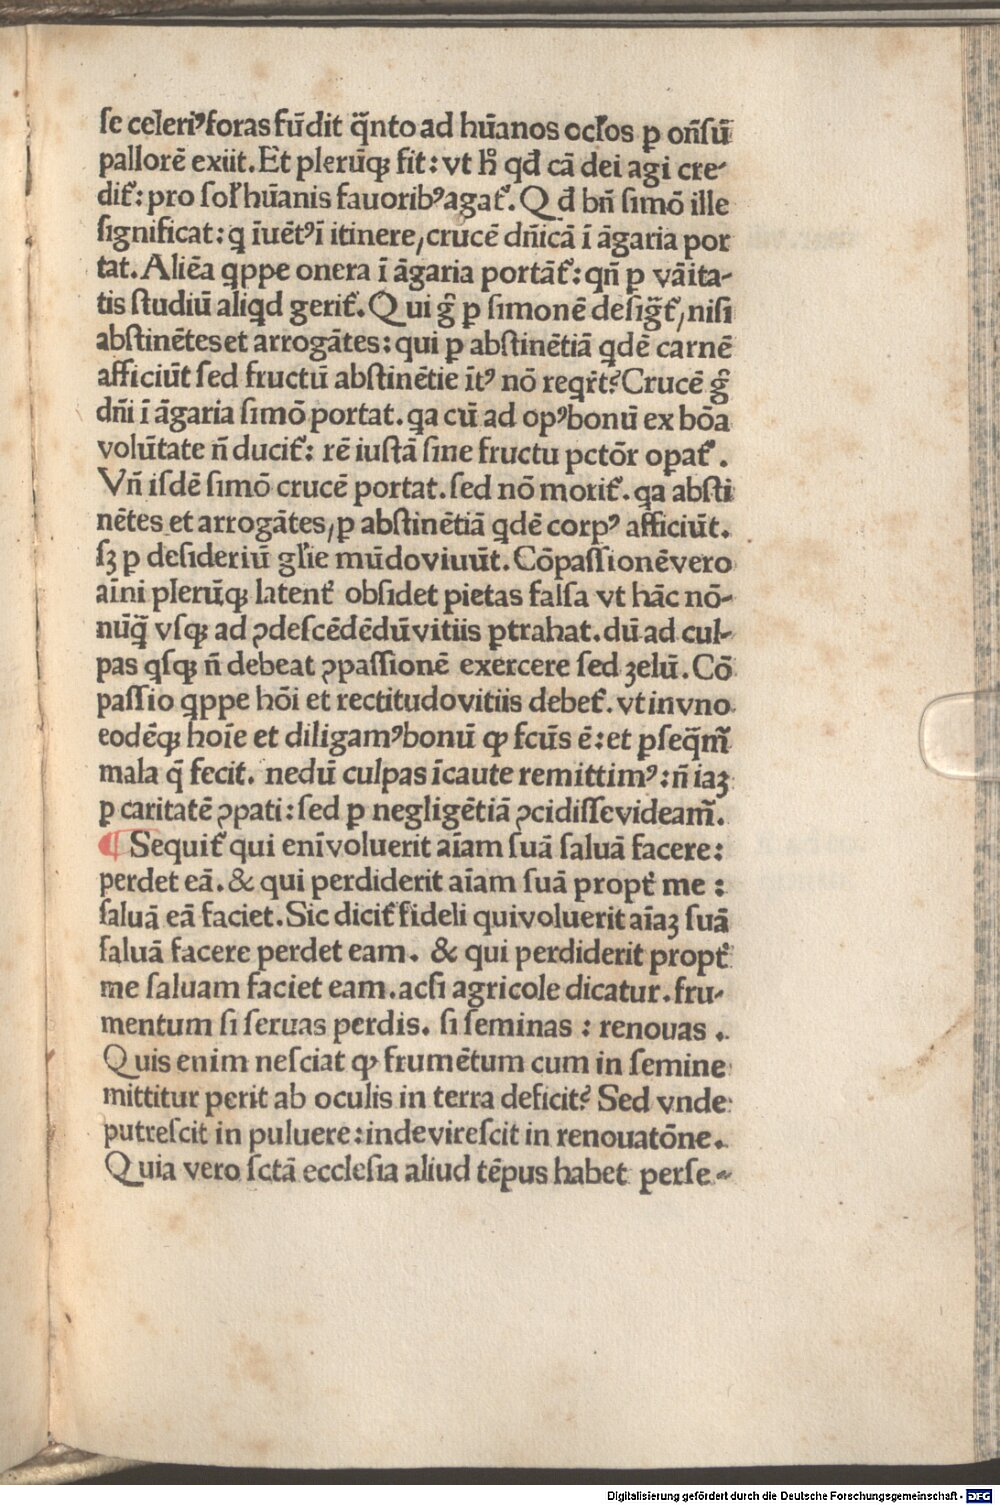 ſe celeriꝰ foras fūdit q̄nto ad hūanos oclos ꝑ on̄ſū
pallorē exiit. Et plerūqꝫ fit: vt h° qđ cā dei agi cre-
dit᷑: pro ſol hūanis fauoribꝰ agat᷑. Qđ bn̄ ſimō ille
ſignificat: q īuētꝰ ī itinere, crucē dn̄icā ī āgaria por
tat. Aliēa qppe onera ī āgaria portāt᷑: qn̄ ꝑ vāita-
tis ſtudiū aliqd gerit᷑. Qui g̊ ꝑ ſimonē deſiḡt᷑, niſi
abſtinētes et arrogātes: qui ꝑ abſtinētiā qdē carnē
afficiūt ſed fructū abſtinētie īt᷒ nō reqr̄t? Crucē g̊
dn̄i ī āgaria ſimō portat. qa cū ad opꝰ bonū ex bōa
volūtate n̄ ducit᷑: rē iuſtā ſine fructu pctōr opat᷑.
Vn̄ iſdē ſimō crucē portat. ſed nō morit᷑. qa abſti
nētes et arrogātes, ꝑ abſtinētiā qdē corpꝰ afficiūt.
ſꝫ ꝑ deſideriū gl̄ie mūdo viuūt. Cōpaſſionē vero
aīni plerūqꝫ latent᷑ obſidet pietas falſa vt hāc nō-
nūq̄ vſqꝫ ad ꝯdeſcēdēdū vitiis ꝑtrahat. dū ad cul-
pas qſqꝫ n̄ debeat ꝯpaſſionē exercere ſed zelū. Cō
paſſio qppe hōi et rectitudo vitiis debet᷑. vt in vno
eodēqꝫ hoīe et diligamꝰ bonū ꝙ fcūs ē: et ꝑſeq̄m᷑
mala q̄ fecit. ne dū culpas īcaute remittimꝰ: n̄ iaꝫ
ꝑ caritatē ꝯpati: ſed ꝑ negligētiā ꝯcidiſſe videam᷑.
¶ Sequit᷑ qui enī voluerit aīam ſuā ſaluā facere:
perdet eā. & qui perdiderit aīam ſuā propt᷑ me :
ſaluā eā faciet. Sic dicit᷑ fideli qui voluerit aīaꝫ ſuā
ſaluā facere perdet eam. & qui perdiderit propt᷑
me ſaluam faciet eam. acſi agricole dicatur. fru-
mentum ſi ſeruas perdis. ſi ſeminas : renouas .
Quis enim neſciat ꝙ frumētum cum in ſemine
mittitur perit ab oculis in terra deficit? Sed vnde
putreſcit in puluere: inde vireſcit in renouatōne.
Quia vero ſctā eccleſia aliud tēpus habet perſe-
Digitalisierung gefördert durch die Deutsche Forschungsgemeinschaft - DFG